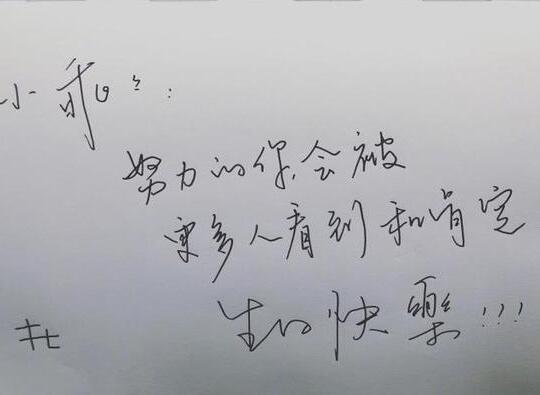 小乖々:
努力的你,会被
更多人看到和肯定
生日快樂!!!